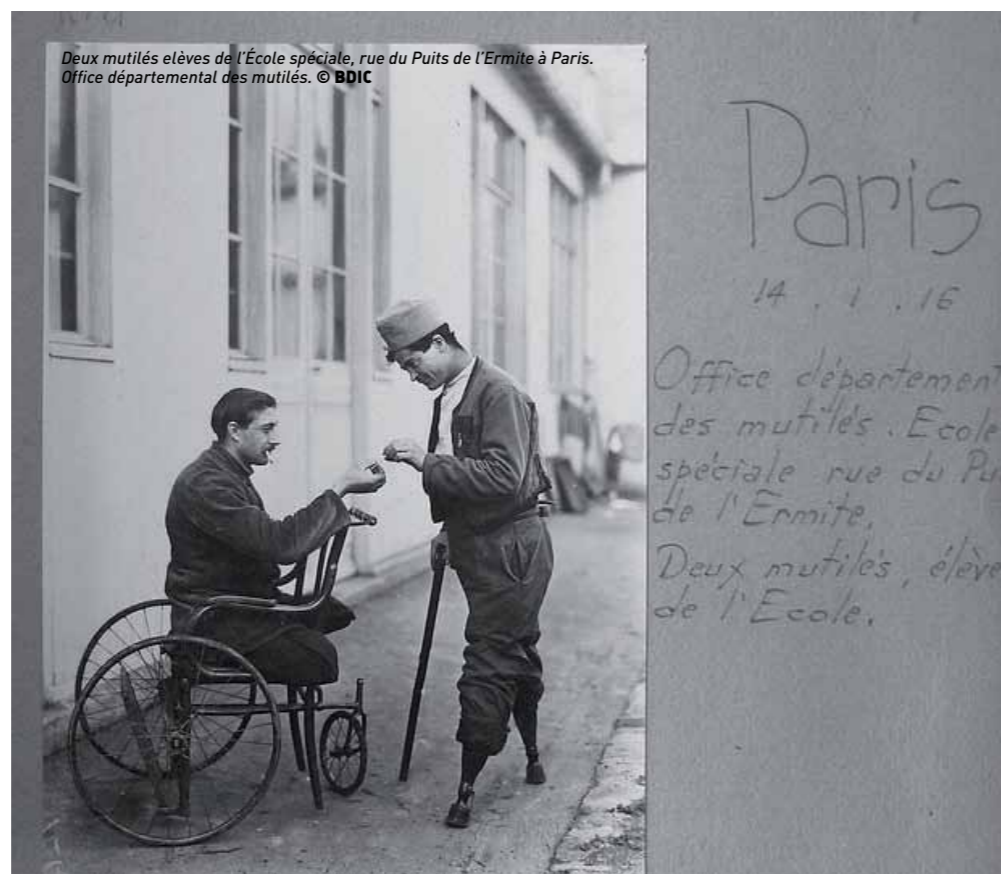 Deux mutilés elèves de l'École spéciale, rue du Puits de l'Ermite à Paris.
Office départemental des mutilés. © BDIC
Paris
14 . 1 . 16
Office département
des mutilés. Ecole
spéciale rue du Pu
de l'Ermite.
Deux mutilés, élève
de l'Ecole.